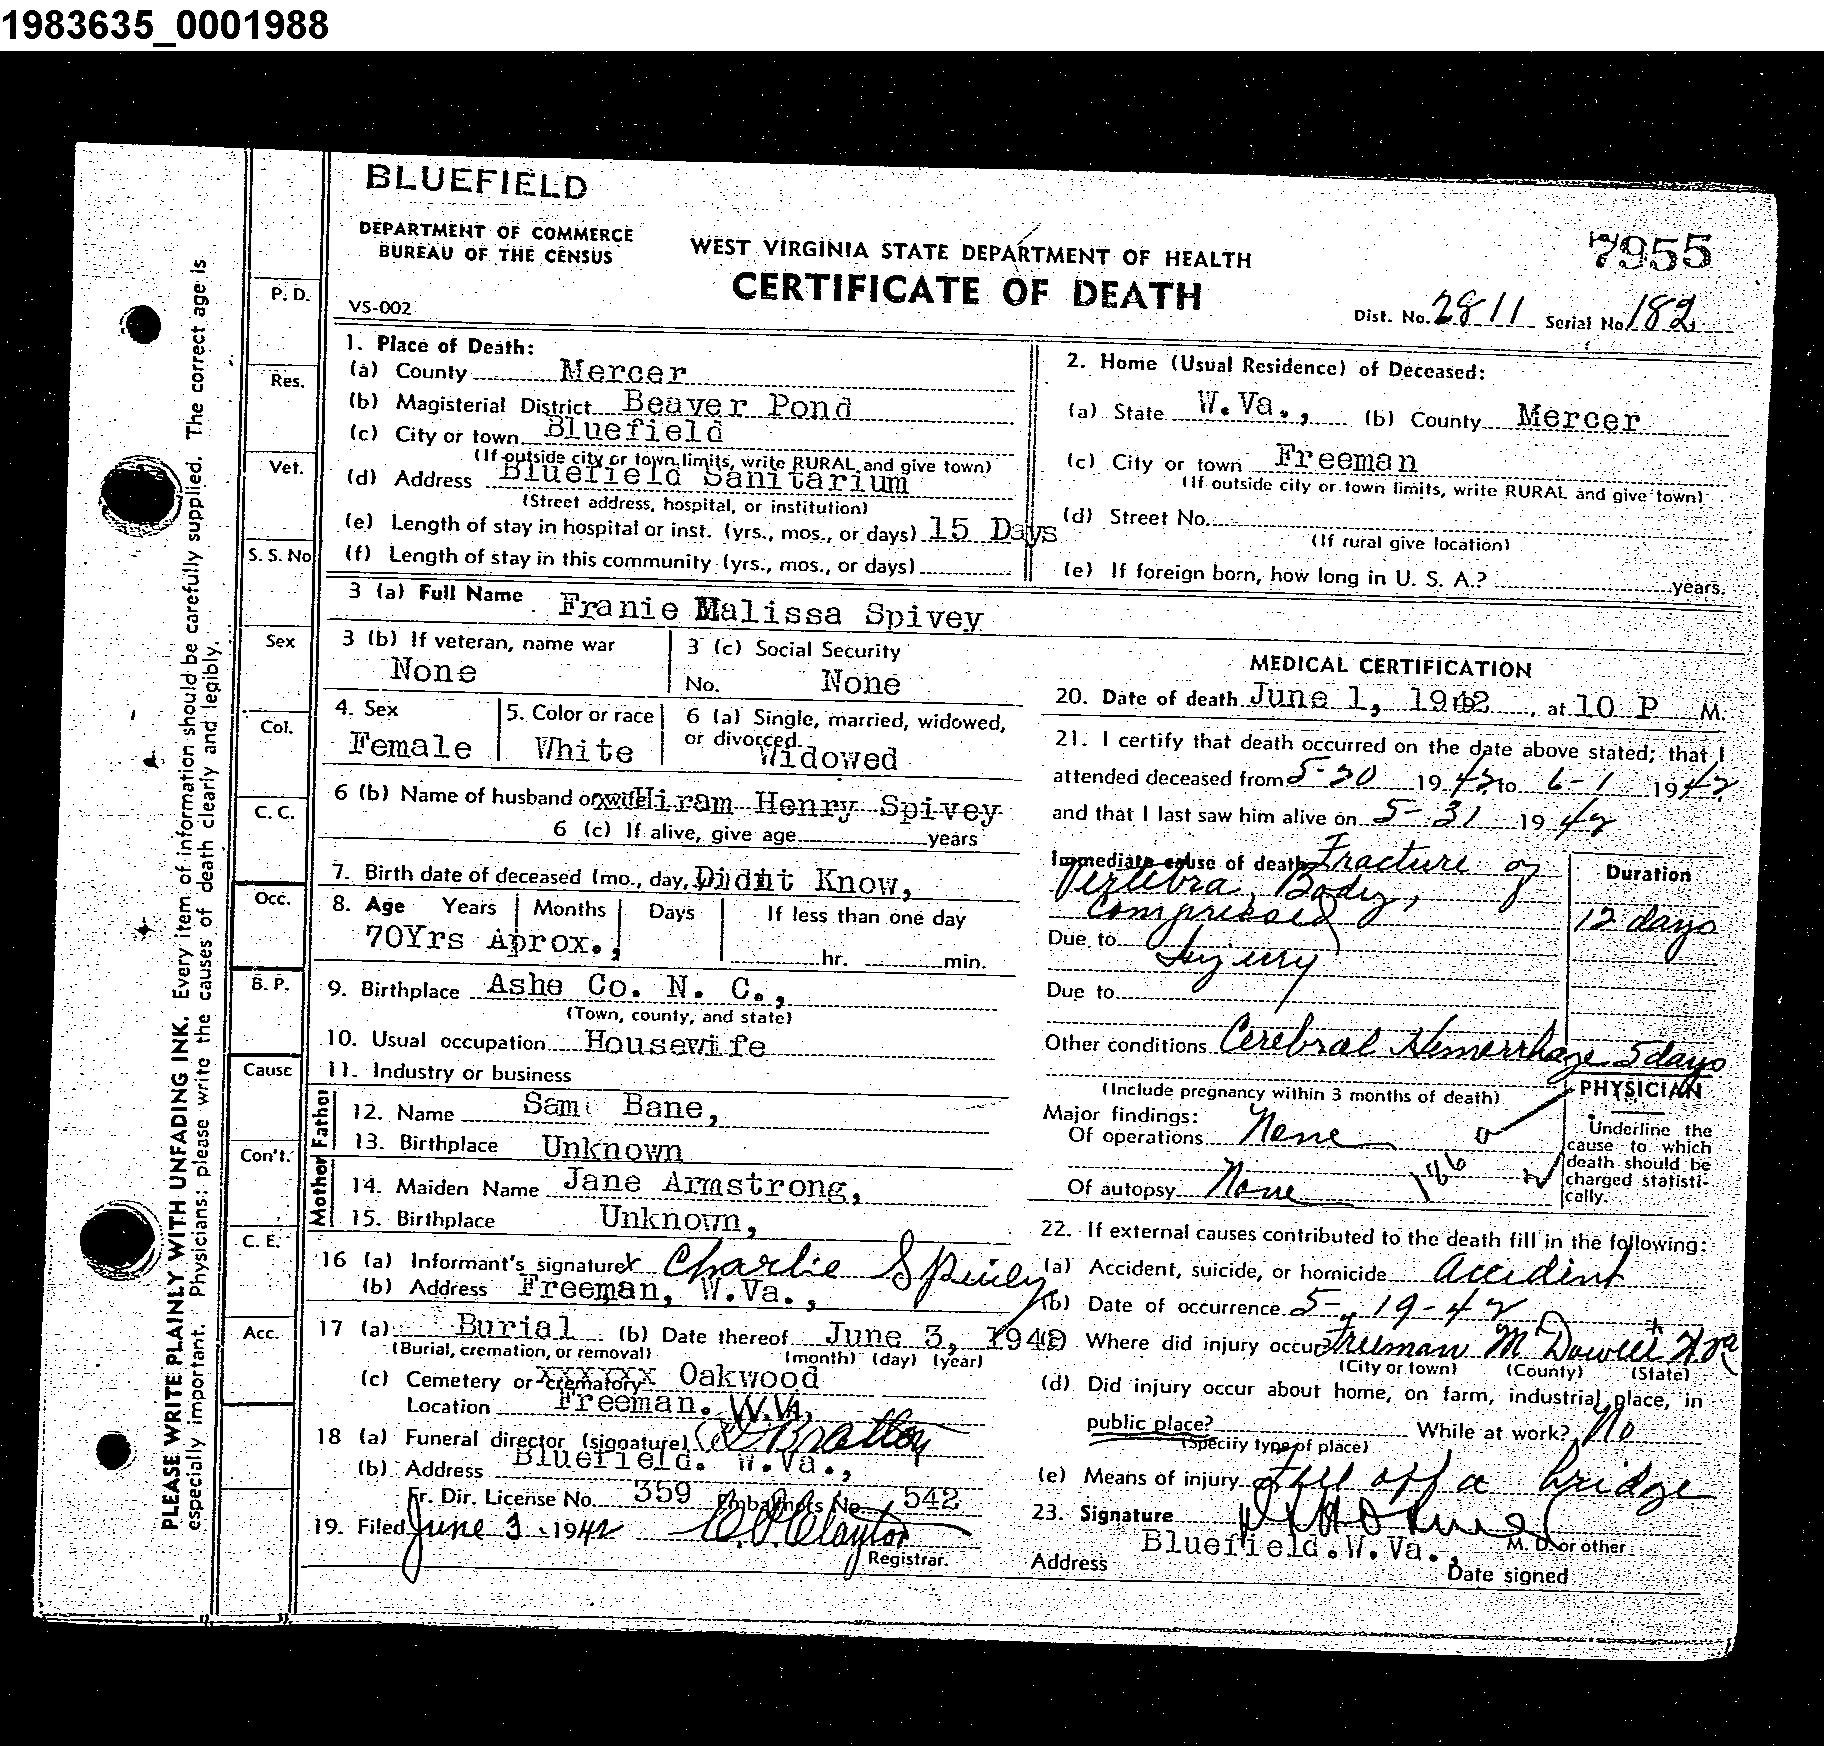 1983635_0001988
BLUEFIELD
DEPARTMENT OF COMMERCE
BUREAU OF THE CENSUS
WEST VIRGINIA STATE DEPARTMENT OF HEALTH
CERTIFICATE OF DEATH
7955
VS-002
Dist. No. 2811 Serial No. 182
PLEASE WRITE PLAINLY WITH UNFADING INK. Every item of information should be carefully supplied. The correct age is
especially important. Physicians: please write the causes of death clearly and legibly.
P. D.
Res.
Vet.
S. S. No
Sex
Col.
C. C.
Occ.
B. P.
Cause
Con't.
C. E.
Acc.
1. Place of Death:
(a) County Mercer
(b) Magisterial District Beaver Pond
(c) City or town Bluefield
(If outside city or town limits, write RURAL and give town)
(d) Address Bluefield Sanitarium
(Street address, hospital, or institution)
(e) Length of stay in hospital or inst. (yrs., mos., or days) 15 Days
(f) Length of stay in this community (yrs., mos., or days)
2. Home (Usual Residence) of Deceased:
(a) State W.Va., (b) County Mercer
(c) City or town Freeman
(If outside city or town limits, write RURAL and give town)
(d) Street No.
(If rural give location)
(e) If foreign born, how long in U. S. A.? years.
3 (a) Full Name Franie Malissa Spivey
3 (b) If veteran, name war None
3 (c) Social Security No. None
4. Sex Female
5. Color or race White
6 (a) Single, married, widowed, or divorced Widowed
6 (b) Name of husband or wife Hiram Henry Spivey
6 (c) If alive, give age years
7. Birth date of deceased (mo., day, Didnt Know,
8. Age Years Months Days If less than one day
70Yrs Aprox., hr. min.
9. Birthplace Ashe Co. N. C.,
(Town, county, and state)
10. Usual occupation Housewife
11. Industry or business
Father
12. Name Sam Bane,
13. Birthplace Unknown
Mother
14. Maiden Name Jane Armstrong,
15. Birthplace Unknown,
16 (a) Informant's signature X Charlie Spivey
(b) Address Freeman, W.Va.,
17 (a) Burial (b) Date thereof June 3, 1942
(Burial, cremation, or removal) (month) (day) (year)
(c) Cemetery or crematory Oakwood
Location Freeman. W.VA,
18 (a) Funeral director (signature) Bratton
(b) Address Bluefield. W.Va.,
Fr. Dir. License No. 359 Embalmers No. 542
19. Filed June 3 1942 Clayton
Registrar.
MEDICAL CERTIFICATION
20. Date of death June 1, 1942, at 10 P M.
21. I certify that death occurred on the date above stated; that I
attended deceased from 5-20 1942 to 6-1 1942
and that I last saw him alive on 5-31 1942
Immediate cause of death Fracture of
Vertebra, Body,
Compressed
Duration
12 days
Due to Injury
Due to
Other conditions Cerebral Hemorrhage 5 days
(Include pregnancy within 3 months of death)
Major findings:
Of operations None
Of autopsy None
186
PHYSICIAN
Underline the
cause to which
death should be
charged statisti-
cally.
22. If external causes contributed to the death fill in the following:
(a) Accident, suicide, or homicide Accident
(b) Date of occurrence 5-19-42
(c) Where did injury occur Freeman McDowell W Va
(City or town) (County) (State)
(d) Did injury occur about home, on farm, industrial place, in
public place? While at work? No
(Specify type of place)
(e) Means of injury Fell off a bridge
23. Signature
M. D. or other
Address Bluefield.W.Va.,
Date signed